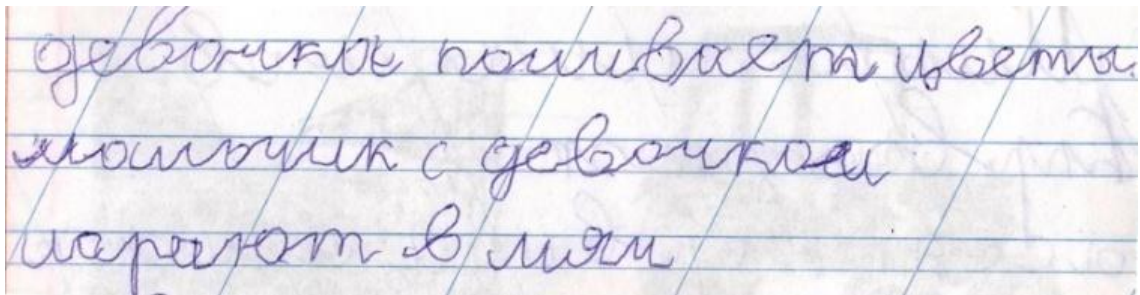 девочка поливает цветы.
мальчик с девочкой
играют в мяч